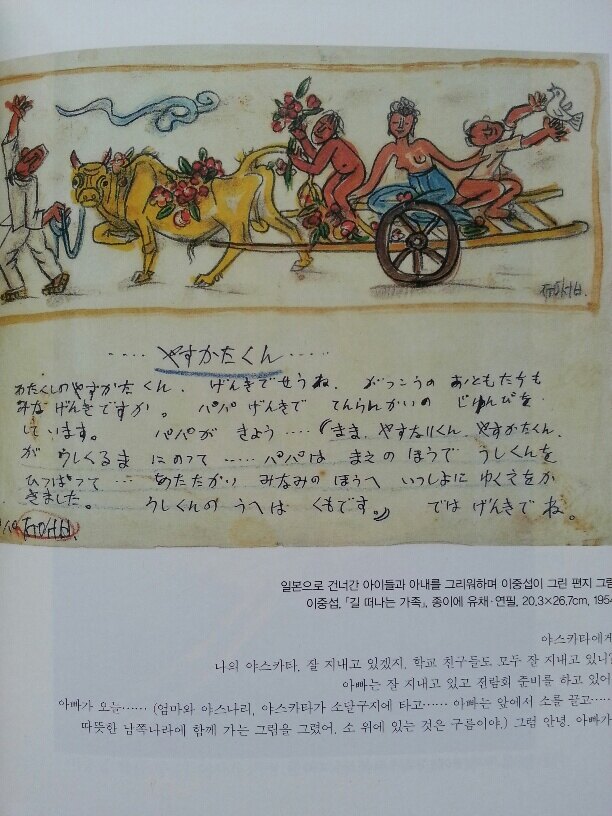 ㅈㅜㅇㅅㅓㅂ
.... やすかたくん .....
わたくしのやすかたくん、げんきでせうね。がっこうの おともたちも
みなげんきですか。パパ げんきで てんらんかいの じゅんびを
しています。 パパが きょう ....(まま、やすなりくん、やすかたくん、
が うしくるま にのって ..... パパは まえの ほうで うしくんを
ひっぱって .... あたたかい みなみのほうへ いっしよに ゆくえをか
きました。 うしくんの うへは くもです。) では げんきで ね。
ㅈㅜㅇㅅㅓㅂ
일본으로 건너간 아이들과 아내를 그리워하며 이중섭이 그린 편지 그림
이중섭, 「길 떠나는 가족」, 종이에 유채·연필, 20.3×26.7cm, 1954
야스카타에게
나의 야스카타, 잘 지내고 있겠지. 학교 친구들도 모두 잘 지내고 있니?
아빠는 잘 지내고 있고 전람회 준비를 하고 있어
아빠가 오늘…… (엄마와 야스나리, 야스카타가 소달구지에 타고…… 아빠는 앞에서 소를 끌고……
따뜻한 남쪽나라에 함께 가는 그림을 그렸어. 소 위에 있는 것은 구름이야.) 그럼 안녕. 아빠가